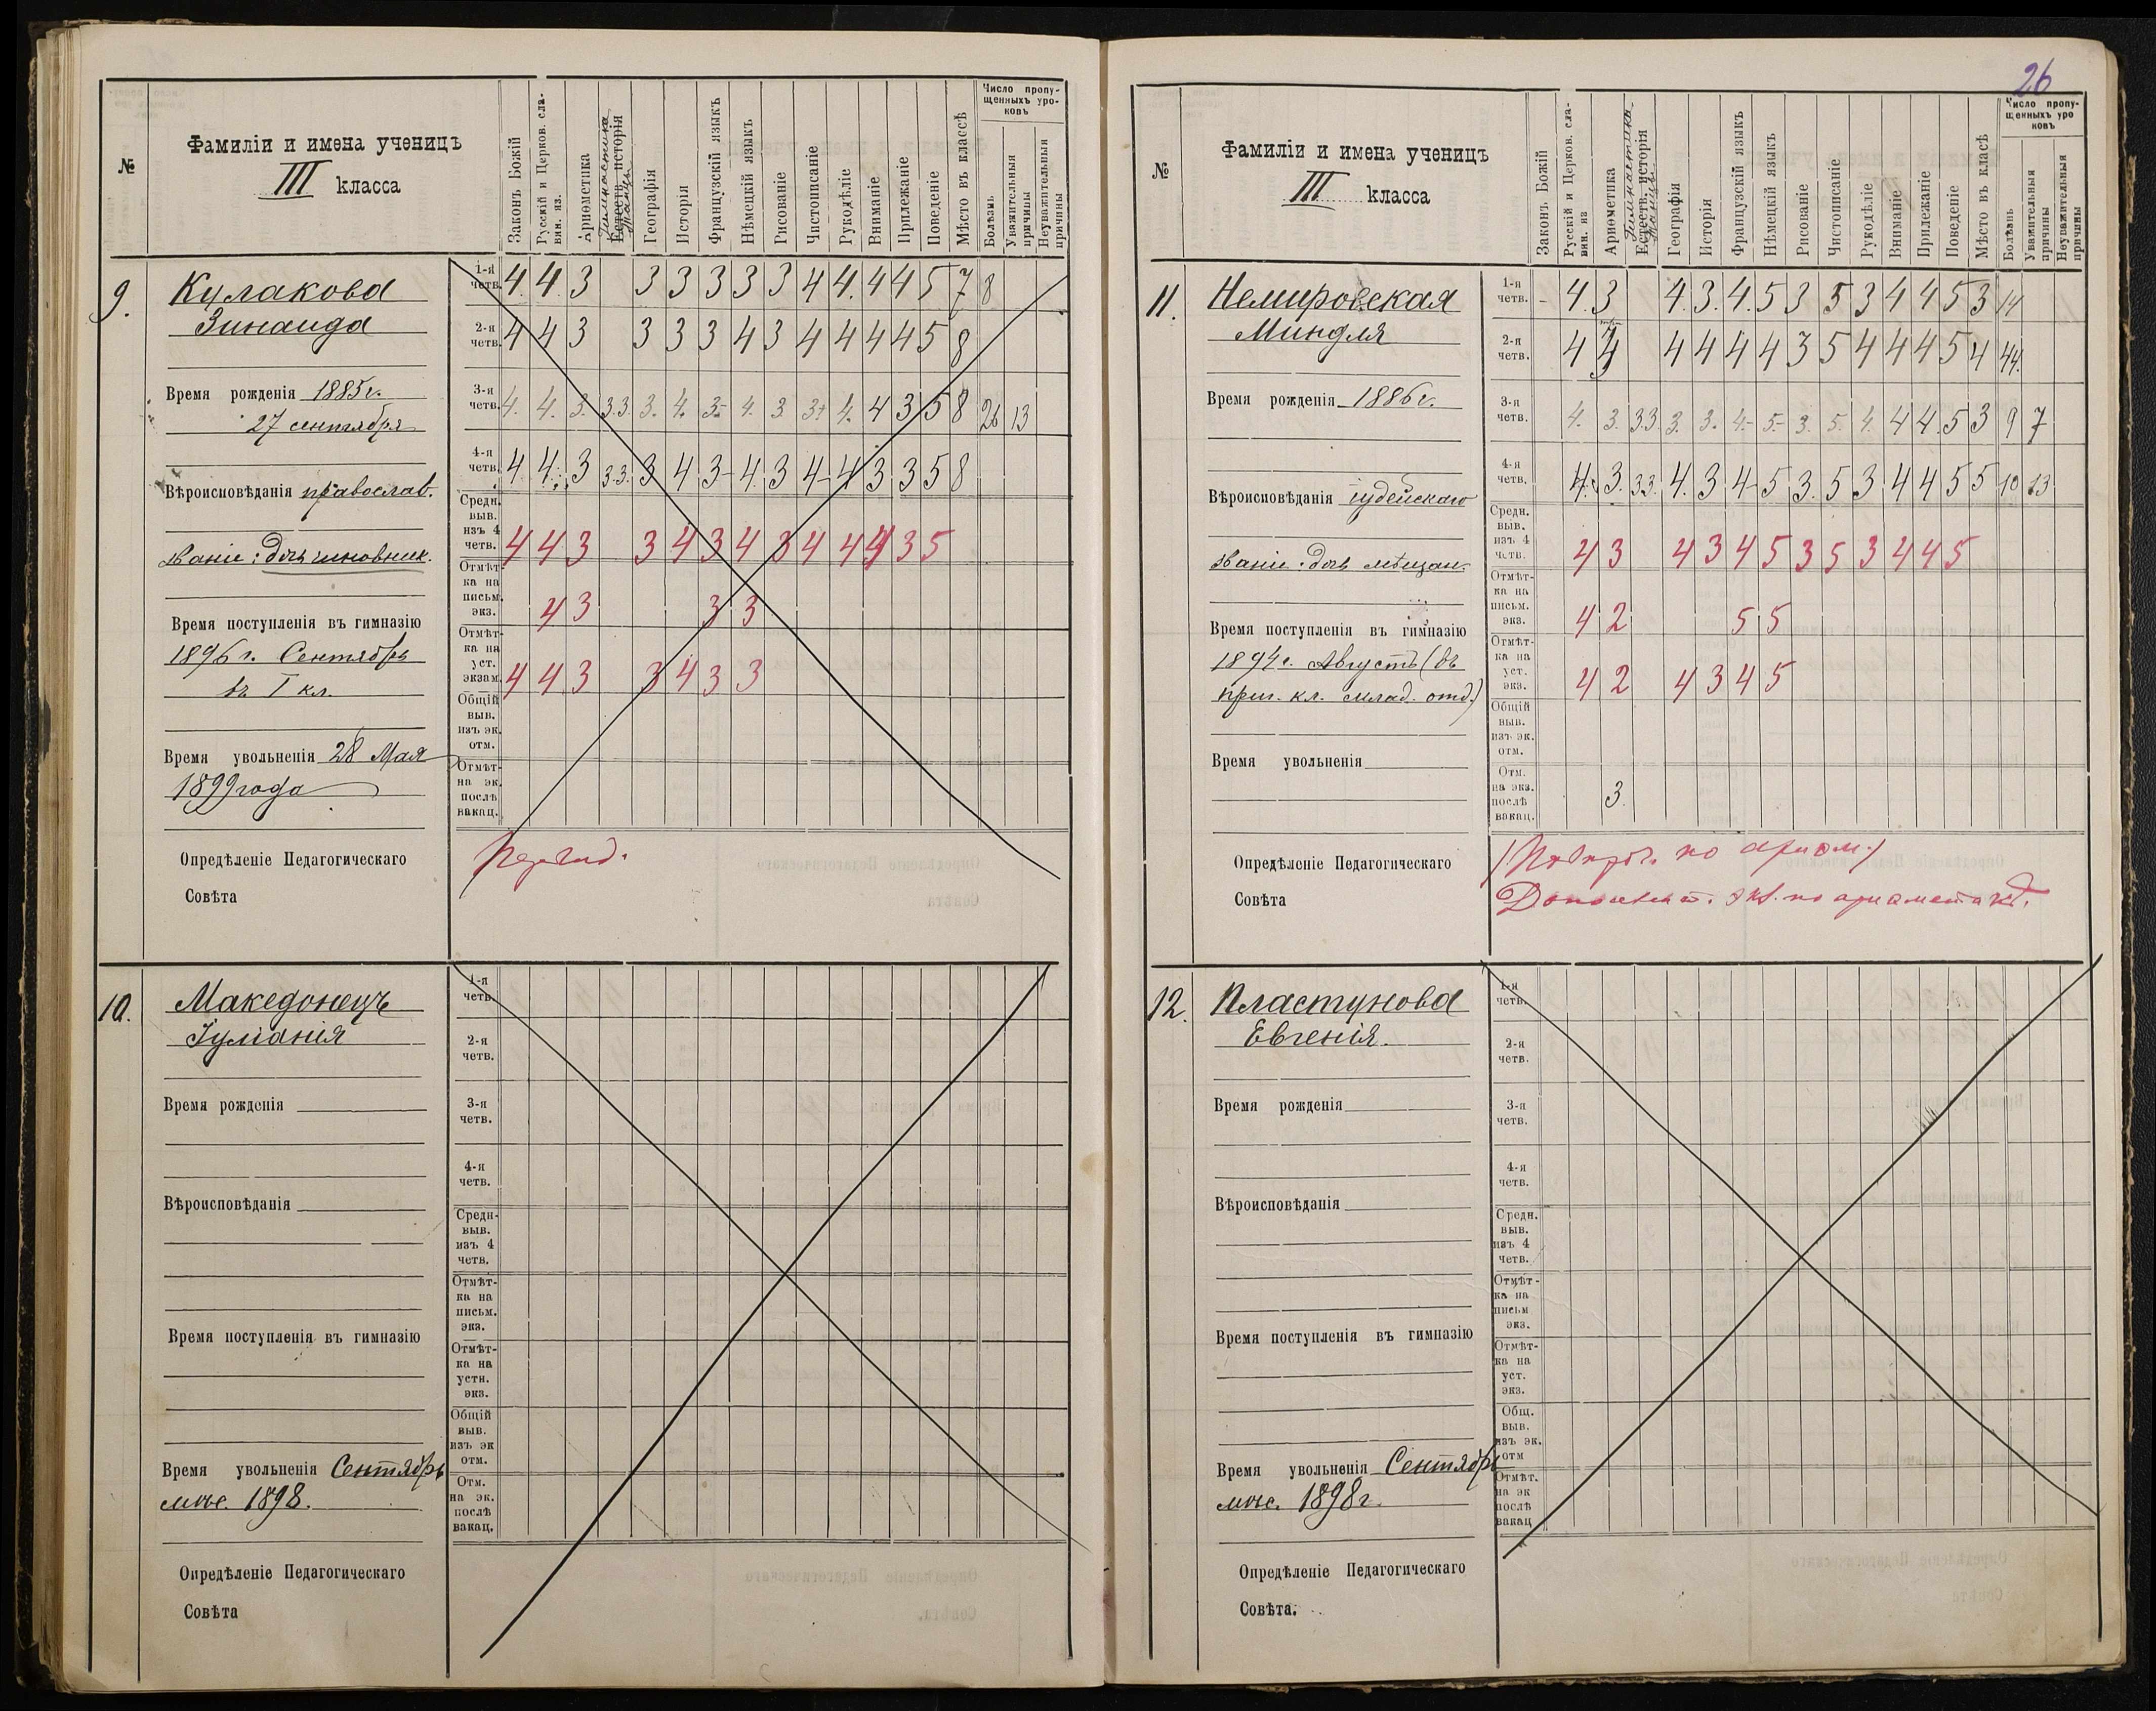 26
№
Фамиліи и имена ученицъ
III класса
Законъ Божій
Русскій и Церков. сла-
вян. яз.
Ариѳметика
Гимнастика
Естеств. исторія
Танцы
Географія
Исторія
Французскій языкъ
Нѣмецкій языкъ
Рисованіе
Чистописаніе
Рукодѣліе
Вниманіе
Прилежаніе
Поведеніе
Мѣсто въ классѣ
Число пропу-
щенныхъ уро-
ковъ
Болѣзнь
Уважительныя
причины
Неуважительныя
причины
9.
Кулакова
Зинаида
Время рожденія 1885г.
27 сентября
Вѣроисповѣданія православ.
Званіе: дочь чиновник.
Время поступленія въ гимназію
1896 г. Сентябрь
въ I кл.
Время увольненія 28 Мая
1899 года
1-я четв. 4. 4. 3 3 3 3 3 3 4 4. 4 4 5 7 8
2-я четв. 4 4 3 3 3 3 4 3 4 4 4 4 5 8
3-я четв. 4. 4. 3. 3.3. 3. 4. 3- 4. 3 3+ 4. 4 3 5 8 26 13
4-я четв. 4. 4. 3 3.3. 3 4 3- 4. 3 4- 4 3 3 5 8
Средн. выв. изъ 4 четв. 4 4 3 3 4 3 4 3 4 4 4 3 5
Отмѣт- ка на письм. экз. 4 3 3 3
Отмѣт- ка на уст. экзам. 4 4 3 3 4 3 3
Общій выв. изъ эк. отм.
Отмѣт. на эк. послѣ вакац.
Опредѣленіе Педагогическаго
Совѣта
10.
Македонецъ
Іуліанія
Время рожденія
Вѣроисповѣданія
Время поступленія въ гимназію
Время увольненія Сентябрь
мѣс. 1898.
1-я четв.
2-я четв.
3-я четв.
4-я четв.
Средн. выв. изъ 4 четв.
Отмѣт- ка на письм. экз.
Отмѣт- ка на устн. экз.
Общій выв. изъ эк отм.
Отм. на эк. послѣ вакац.
Опредѣленіе Педагогическаго
Совѣта
№
Фамиліи и имена ученицъ
III класса
Законъ Божій
Русскій и Церков. сла-
вян. яз
Ариѳметика
Гимнастика
Естеств. исторія
Танцы
Географія
Исторія
Французскій языкъ
Нѣмецкій языкъ
Рисованіе
Чистописаніе
Рукодѣліе
Вниманіе
Прилежаніе
Поведеніе
Мѣсто въ класѣ
Число пропу-
щенныхъ уро
ковъ
Болѣзнь
Уважительныя
причины
Неуважительныя
причины
11.
Немировская
Миндля
Время рожденія 1886г.
Вѣроисповѣданія іудейскаго
Званіе: дочь мѣщан.
Время поступленія въ гимназію
1894г. Августъ (въ
приг. кл. млад. отд.)
Время увольненія
1-я четв. - 4. 3 4. 3. 4. 5 3 5 3 4 4 5 3 14
2-я четв. 4 4 4 4 4 3 5 4 4 4 5 4 44.
3-я четв. 4. 3. 3.3. 3. 3. 4.- 5.- 3. 5. 4. 4 4. 5 3 9 7
4-я четв. 4. 3. 3.3. 4. 3 4- 5 3. 5 3 4 4 5 5 10 13
Средн. выв. изъ 4 четв. 4 3 4 3 4 5 3 5 3 4 4 5
Отмѣт- ка на письм. экз. 4 2 5 5
Отмѣт- ка на уст. экз. 4 2 4 3 4 5
Общій выв. изъ эк. отм.
Отм. на экз. послѣ вакац. 3.
Опредѣленіе Педагогическаго
Совѣта
по ариѳм.)
экз. по ариѳметикѣ.
12.
Пластунова
Евгенія.
Время рожденія
Вѣроисповѣданія
Время поступленія въ гимназію
Время увольненія Сентябрь
мѣс. 1898г.
1-я четв.
2-я четв.
3-я четв.
4-я четв.
Средн. выв. изъ 4 четв.
Отмѣт- ка на письм экз.
Отмѣт- ка на уст. экз.
Общ. выв. изъ эк. отм
Отмѣт. на эк послѣ вакац
Опредѣленіе Педагогическаго
Совѣта.